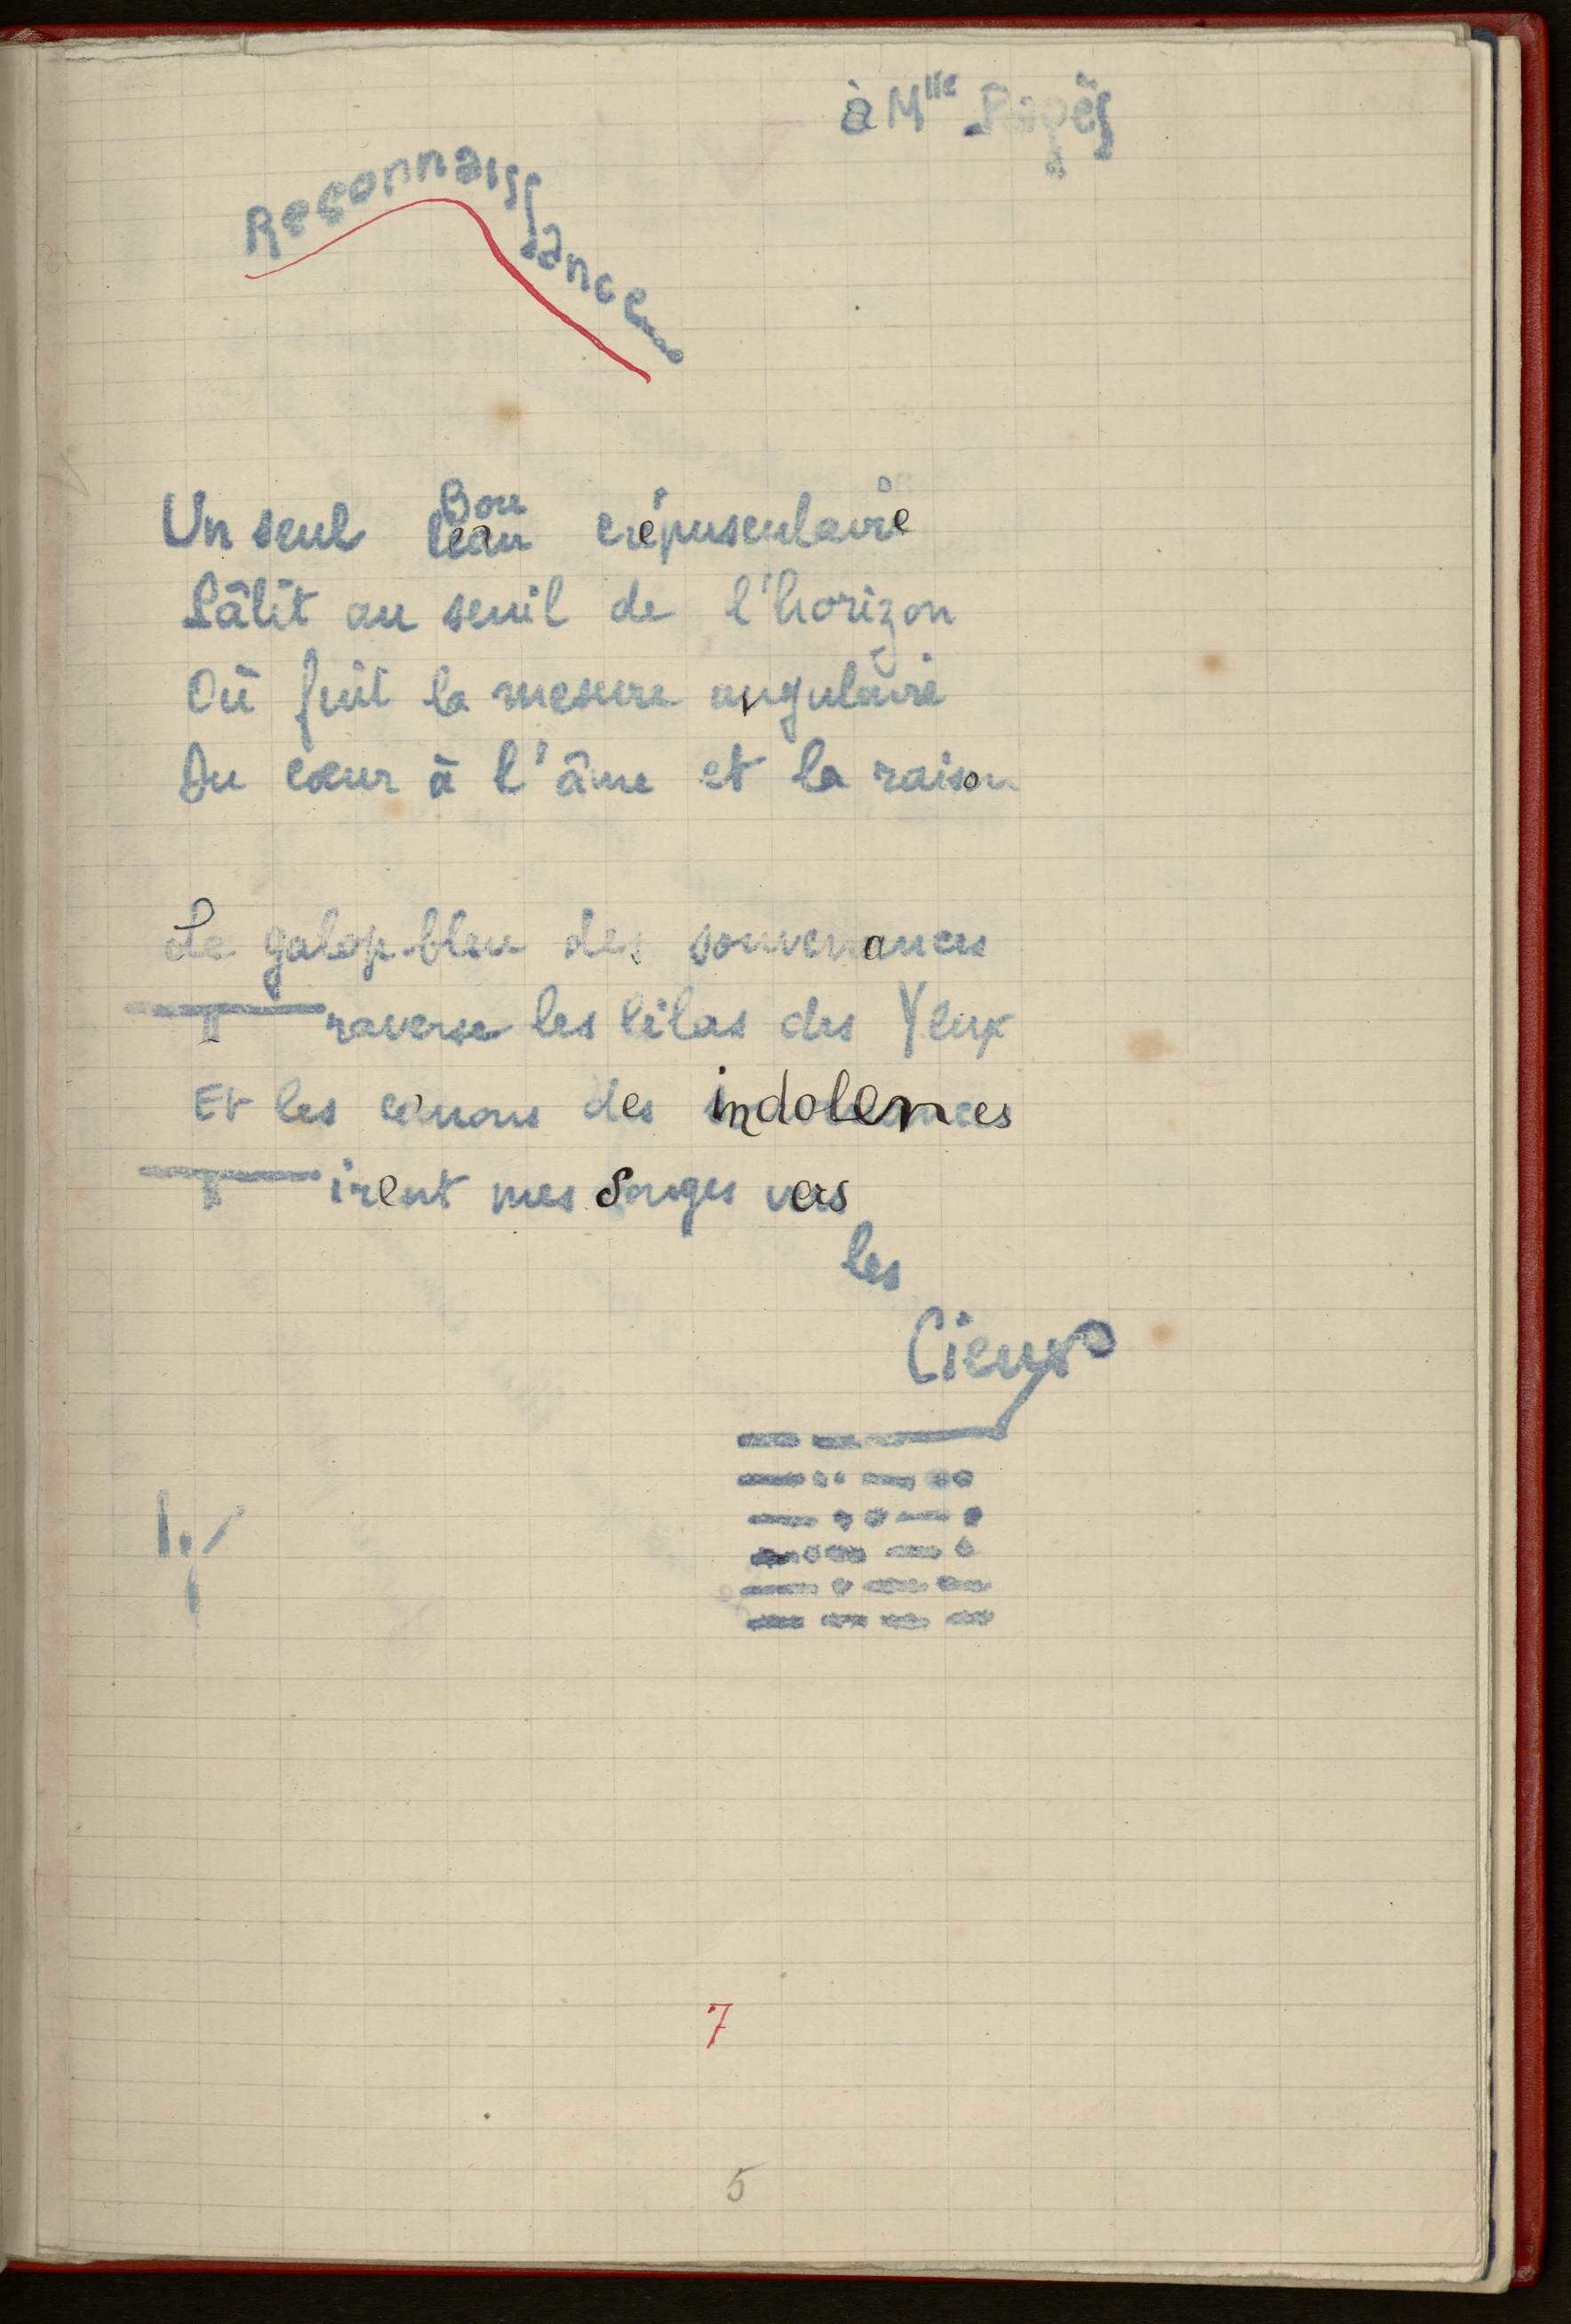 à Mlle Pagès
Reconnaissance
Un seul Bouleau crépusculaire
Pâlit au seuil de l'horizon
Où fuit la mesure angulaire
Du cœur à l'âme et la raison
Le galop bleu des souvenances
Traverse les lilas des Yeux
Et les canons des indolences
Tirent mes songes vers
les
Cieux
7
5